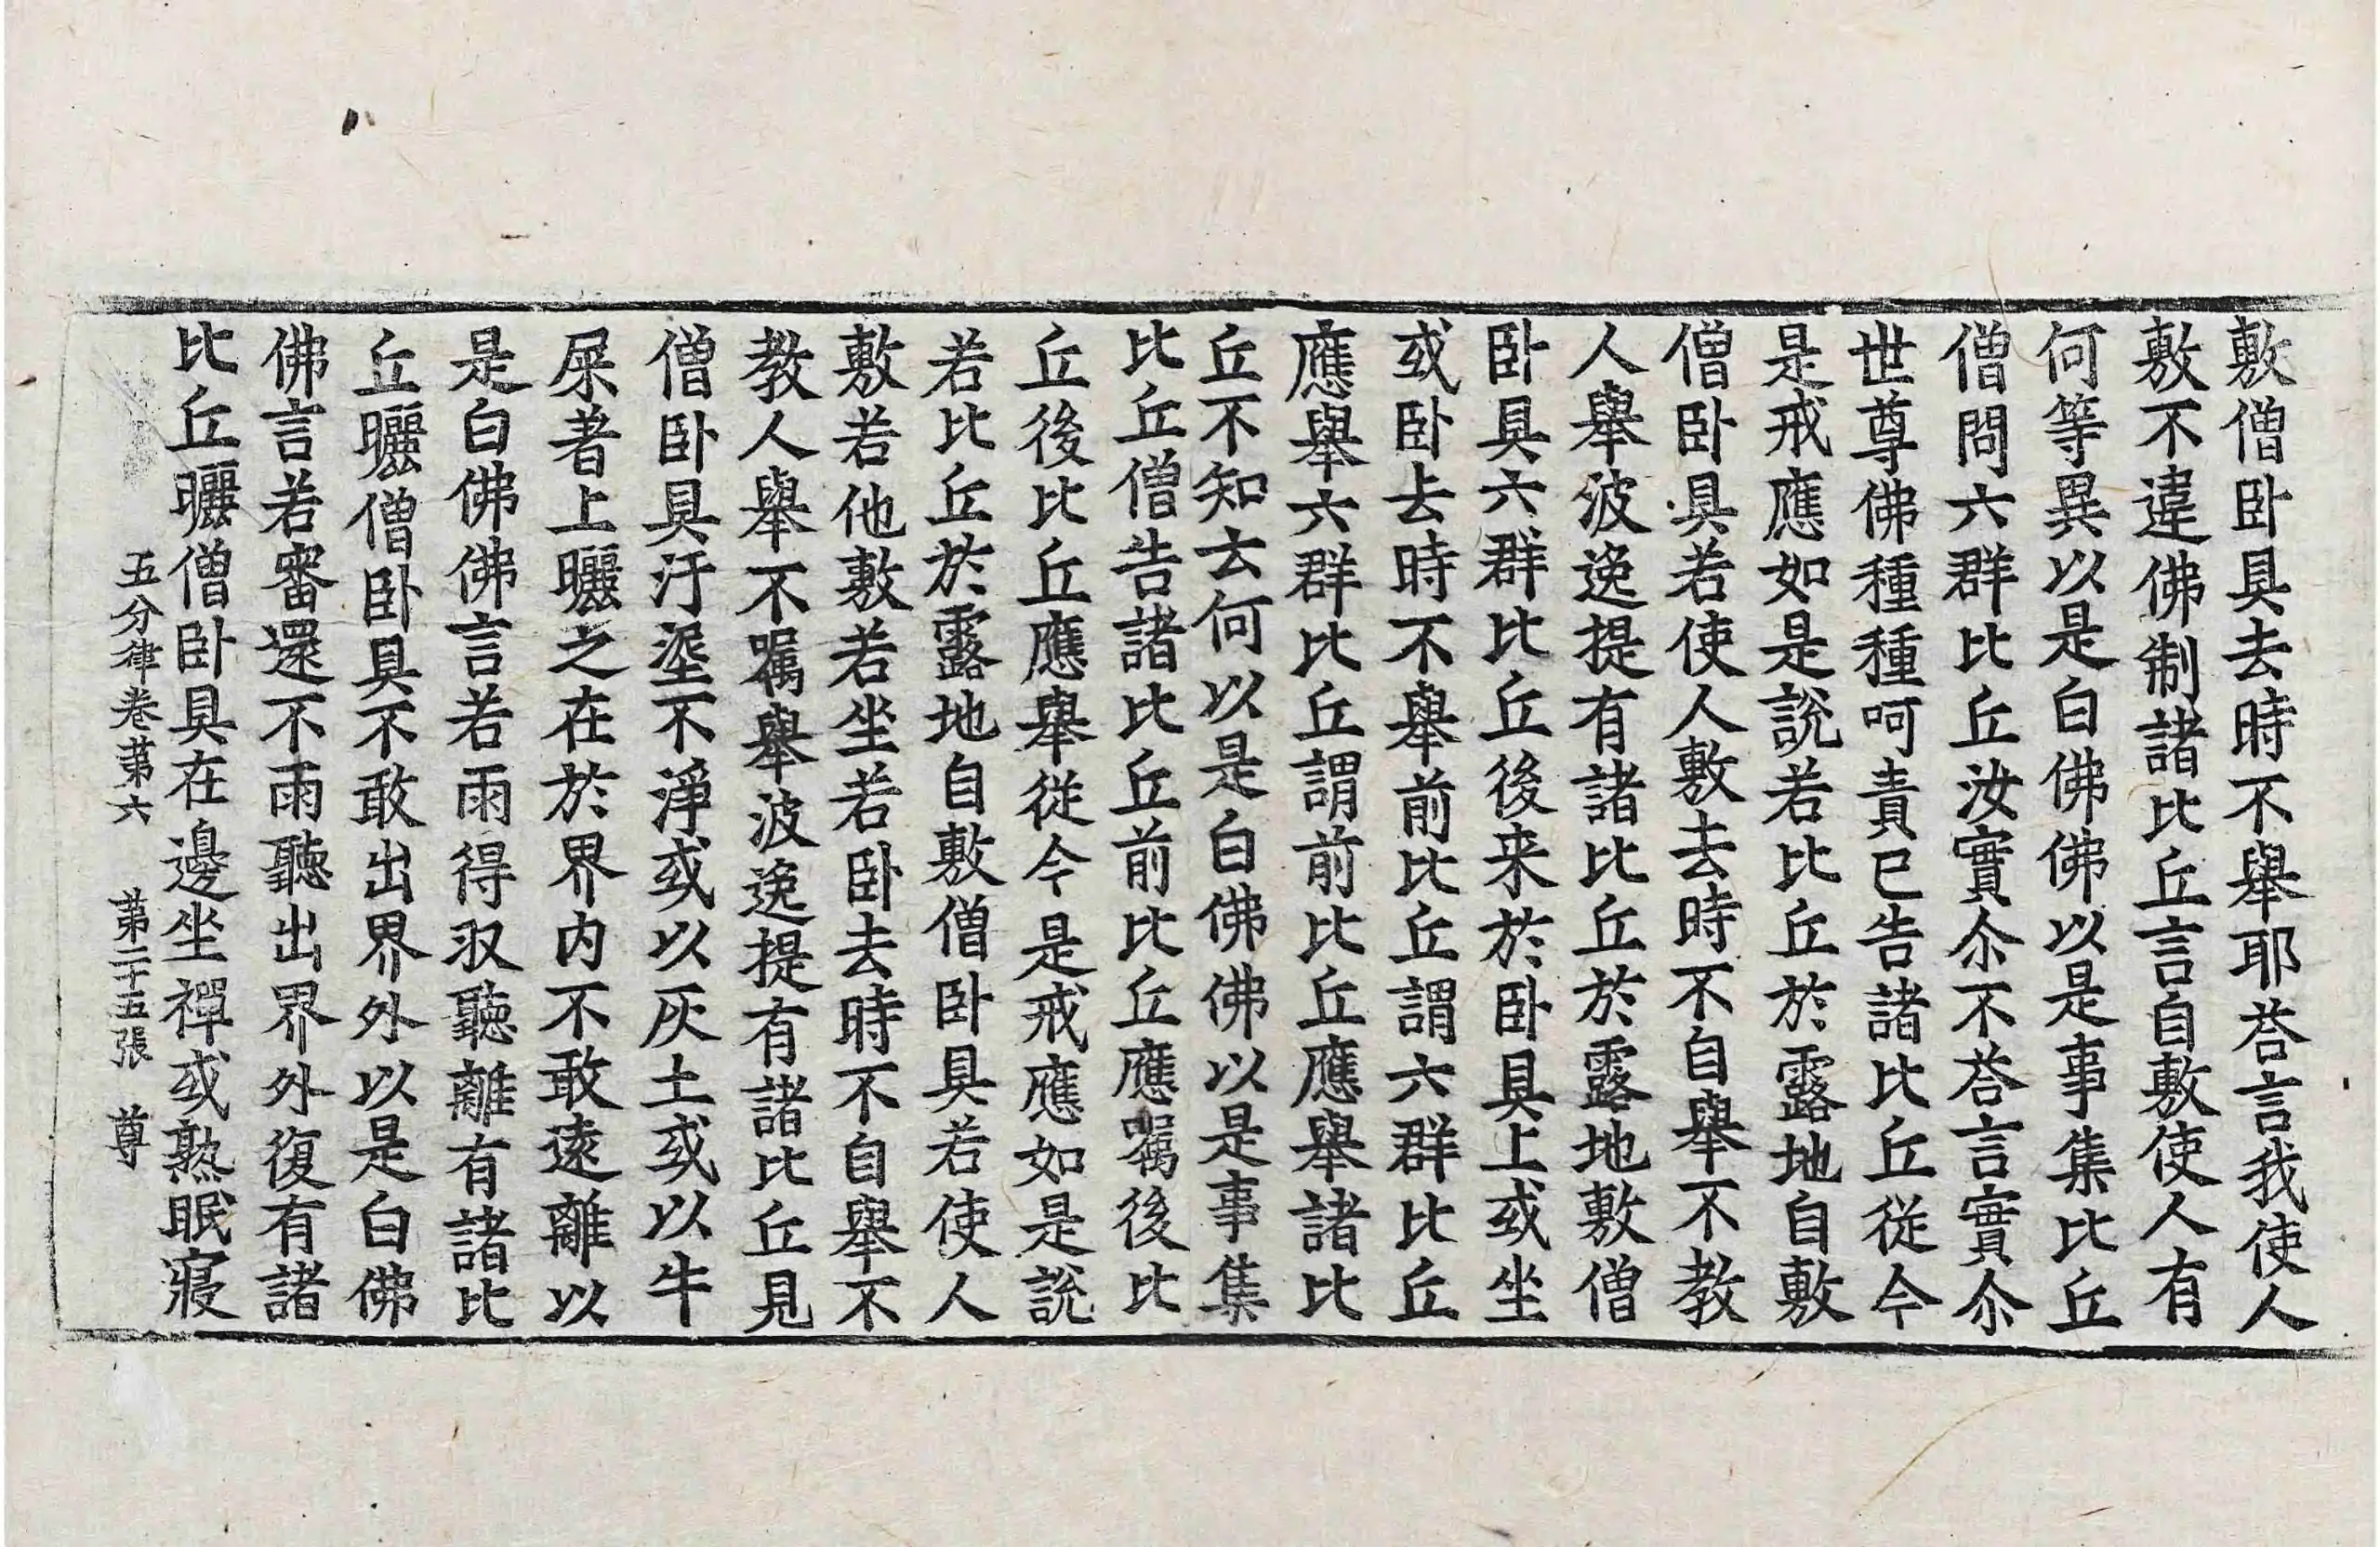 敷僧卧具去時不舉耶荅言我使人
敷不違佛制諸比丘言自敷使人有
何等異以是白佛佛以是事集比丘
僧問六群比丘汝實尒不荅言實尒
世尊佛種種呵責已告諸比丘従今
是戒應如是說若比丘於露地自敷
僧卧具若使人敷去時不自舉不教
人舉波逸提有諸比丘於露地敷僧
卧具六群比丘後来於卧具上或坐
或卧去時不舉前比丘謂六群比丘
應舉六群比丘謂前比丘應舉諸比
丘不知云何以是白佛佛以是事集
比丘僧告諸比丘前比丘應囑後比
丘後比丘應舉従今是戒應如是說
若比丘於露地自敷僧卧具若使人
敷若他敷若坐若卧去時不自舉不
教人舉不囑舉波逸提有諸比丘見
僧卧具汙埿不淨或以灰土或以牛
屎著上曬之在於界内不敢遠離以
是白佛佛言若雨得収聽離有諸比
丘曬僧卧具不敢出界外以是白佛
佛言若審還不雨聽出界外復有諸
比丘曬僧卧具在邊坐禪或熟眠寢
五分律卷第六　第二十五張　尊